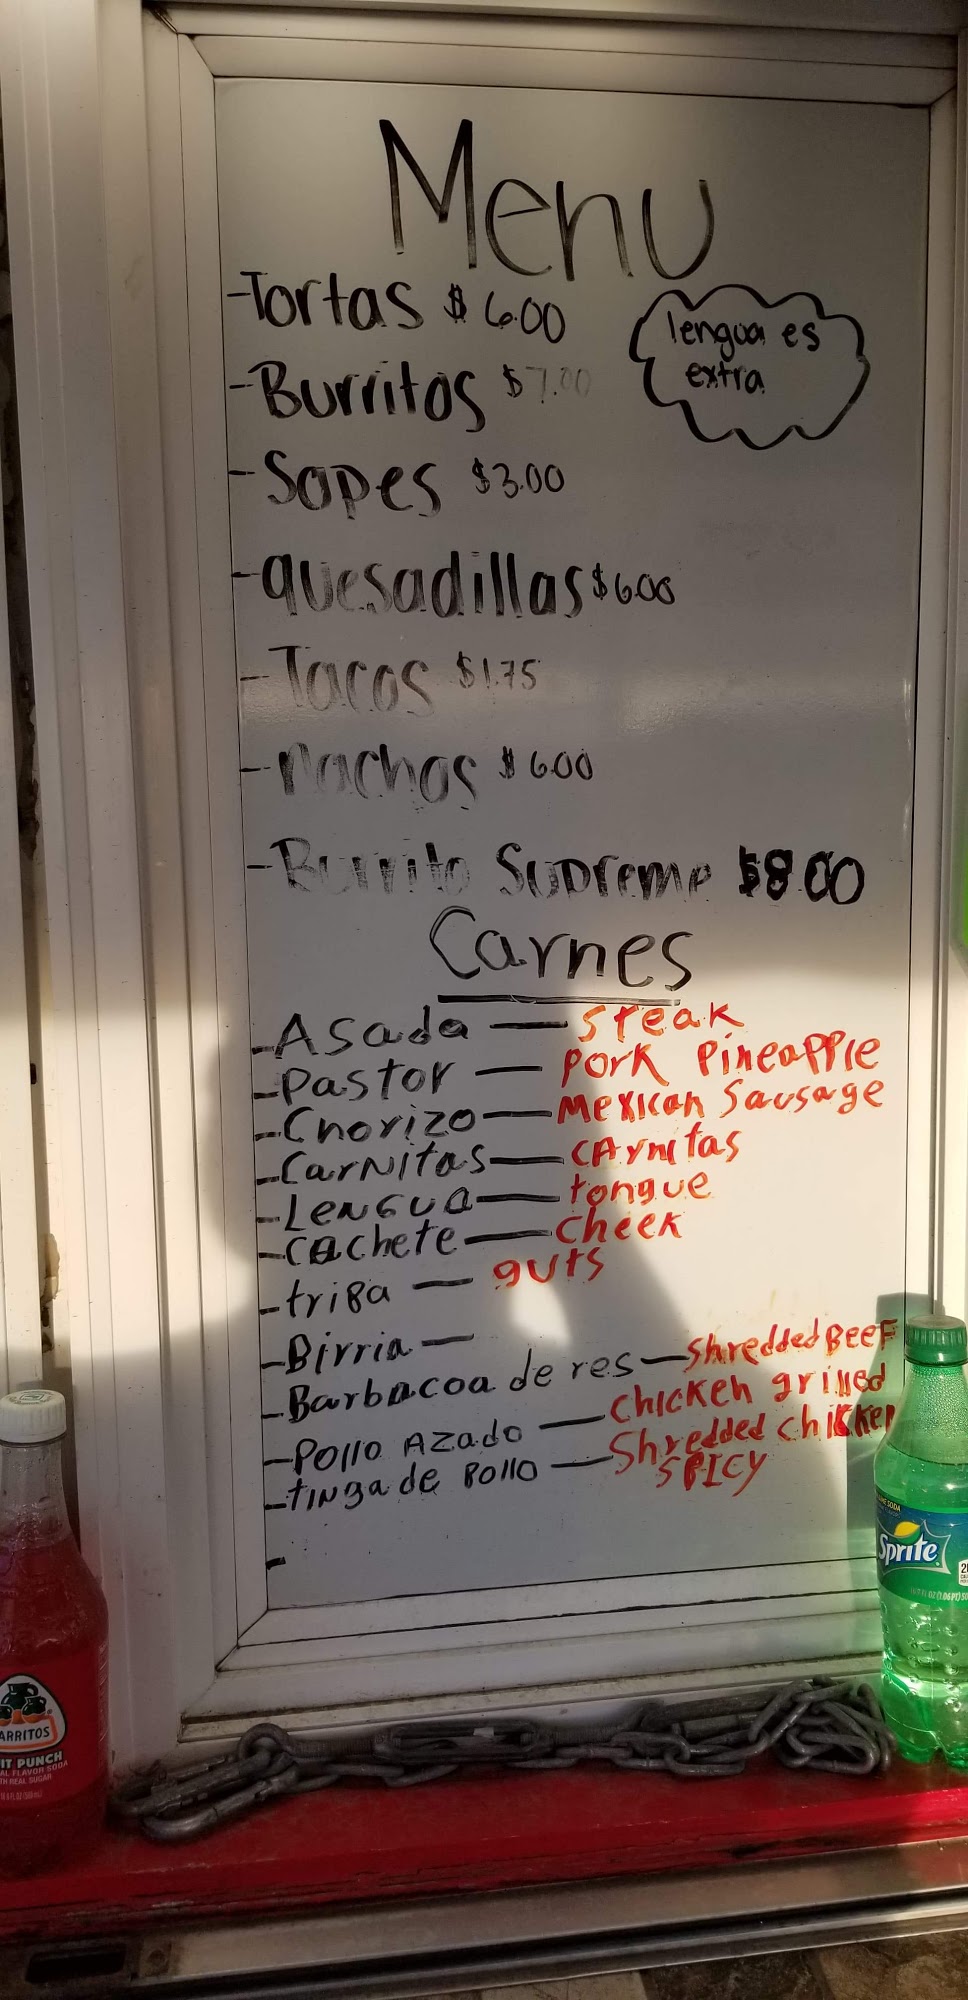 Menu
-Tortas $ 6.00
lengua es
extra
-Burritos $7.00
-Sopes $3.00
-quesadillas $6.00
-Tacos $1.75
-nachos $6.00
-Burrito Supreme $8.00
Carnes
-Asada — Steak
-Pastor — Pork Pineapple
-Chorizo — Mexican Sausage
-Carnitas — CArnitas
-Lengua — tongue
-Cachete — Cheek
-triPa — guts
-Birria —
-Barbacoa de res — Shredded BeeF
-Pollo AZado — Chicken grilled
-tinga de Pollo — Shredded chicken
SPICY
-
ARRITOS
IT PUNCH
AL FLAVOR SODA
TH REAL SUGAR
Sprite